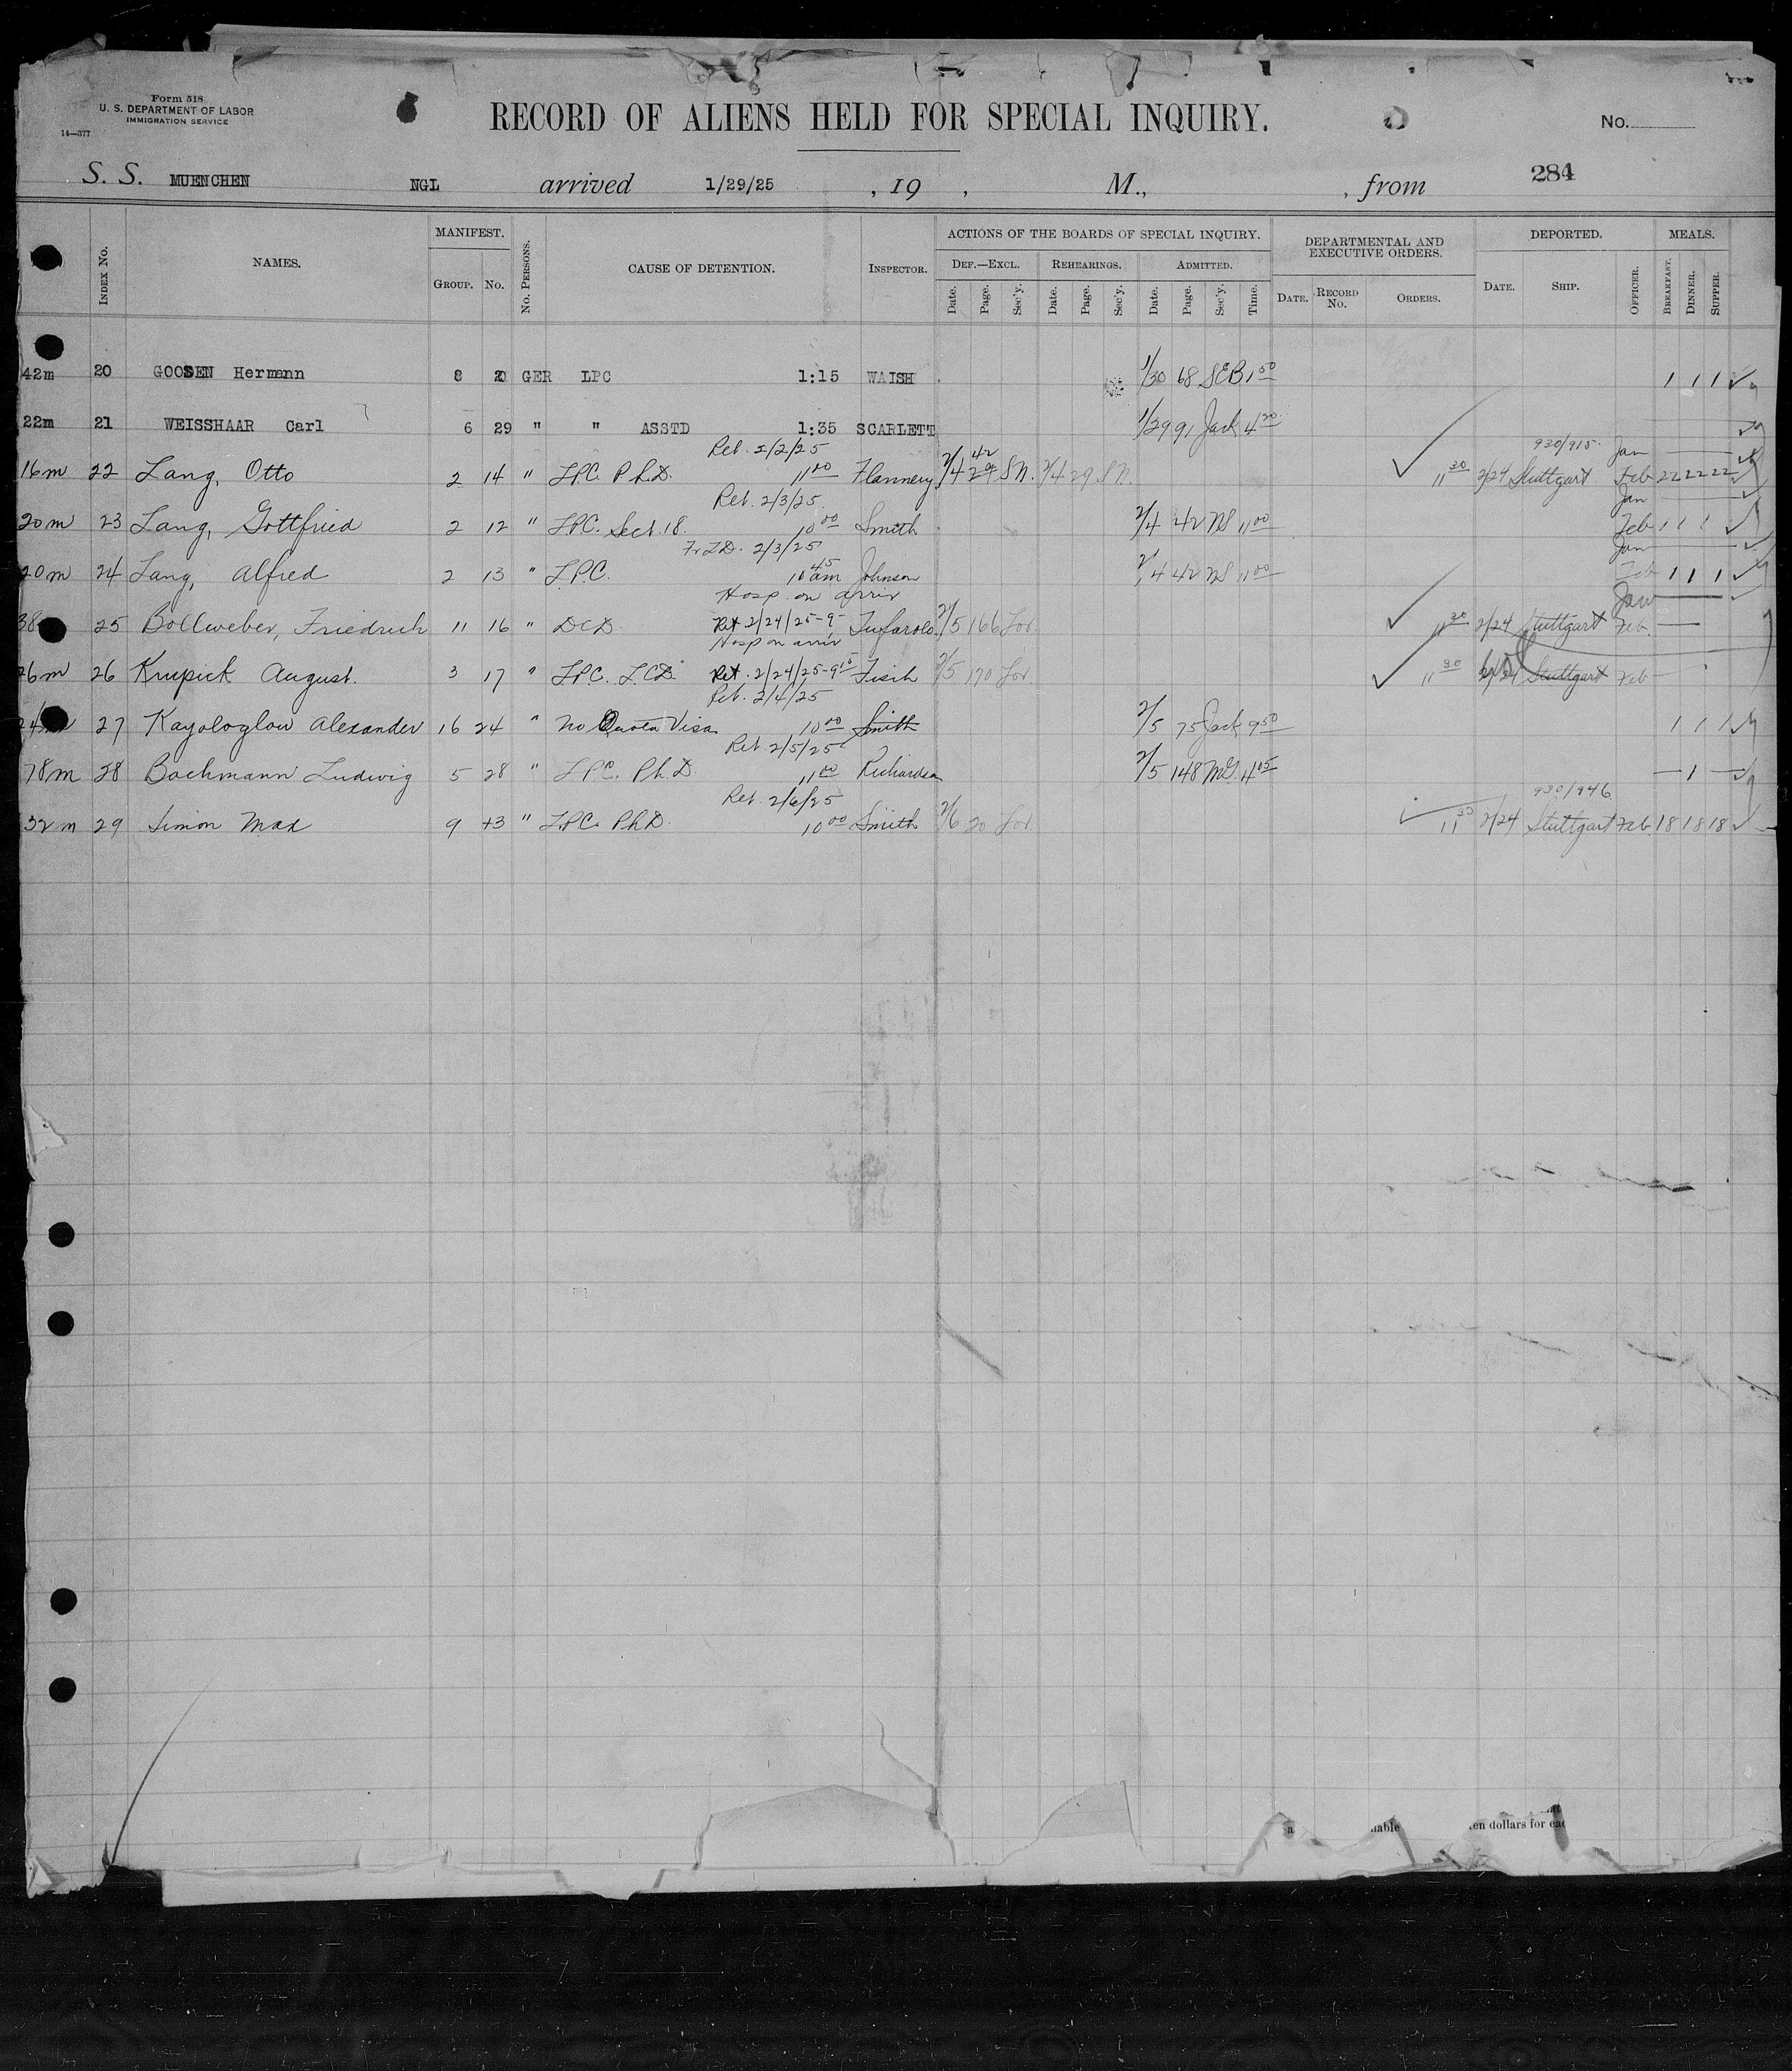 Form 518
U. S. DEPARTMENT OF LABOR
IMMIGRATION SERVICE
14—377
RECORD OF ALIENS HELD FOR SPECIAL INQUIRY.
No.
S. S. MUENCHEN NGL arrived 1/29/25 , 19 , M., , from
284
INDEX No. NAMES. MANIFEST. GROUP. No. No. PERSONS. CAUSE OF DETENTION. INSPECTOR. ACTIONS OF THE BOARDS OF SPECIAL INQUIRY. DEF.—EXCL. Date. Page. Sec'y. REHEARINGS. Date. Page. Sec'y. ADMITTED. Date. Page. Sec'y. Time. DEPARTMENTAL AND EXECUTIVE ORDERS. DATE. RECORD No. ORDERS. DEPORTED. DATE. SHIP. OFFICER. MEALS. BREAKFAST. DINNER. SUPPER.
42m 20 GOOSEN Hermann 8 20 GER LPC 1:15 WAISH 1/30 68 SEB 1 50 1 1 1
22m 21 WEISSHAAR Carl 6 29 " " ASSTD 1:35 SCARLETT 1/29 91 Jack 4 20
Ret. 2/2/25 42 930/915 Jan
16m 22 Lang, Otto 2 14 " LPC. Ph.D. 11 00 Flannery 2/4 29 SN. 2/4 29 SN. 11 30 2/24 Stuttgart Feb 22 22 22
Ret. 2/3/25 Jan
20m 23 Lang, Gottfried 2 12 " LPC. Sect. 18. 10 00 Smith 2/4 42 NS 11 00 Feb 1 1 1
2/3/25 Jan
20m 24 Lang, Alfred 2 13 " LPC. 10 45 am Johnson 2/4 42 NS 11 00 Feb 1 1 1
Hosp. on arriv Jan
38 25 Bollweber, Friedrich 11 16 " DCD. Ret 2/24/25-9- 2/5 166 Lor 11 30 2/24 Stuttgart Feb.
Hosp on arriv
26m 26 Krupick August. 3 17 " LPC. LCD. Ret. 2/24/25-9 15 Fisch 2/5 170 Lor 11 30 2/24 Stuttgart Feb
Ret. 2/4/25
24m 27 Kayologlow Alexander 16 24 " No Quota Visa 10 00 Smith 2/5 75 Jack 9 50 1 1 1
Ret. 2/5/25
78m 28 Bachmann Ludwig 5 28 " LPC. Ph.D. 11 00 Richardson 2/5 148 McG. 4 05 1
Ret. 2/6/25 930/946
32m 29 Simon Max 9 +3 " LPC. PhD. 10 00 Smith 2/6 20 Lor 11 30 2/24 Stuttgart Feb. 18 18 18
ten dollars for eac